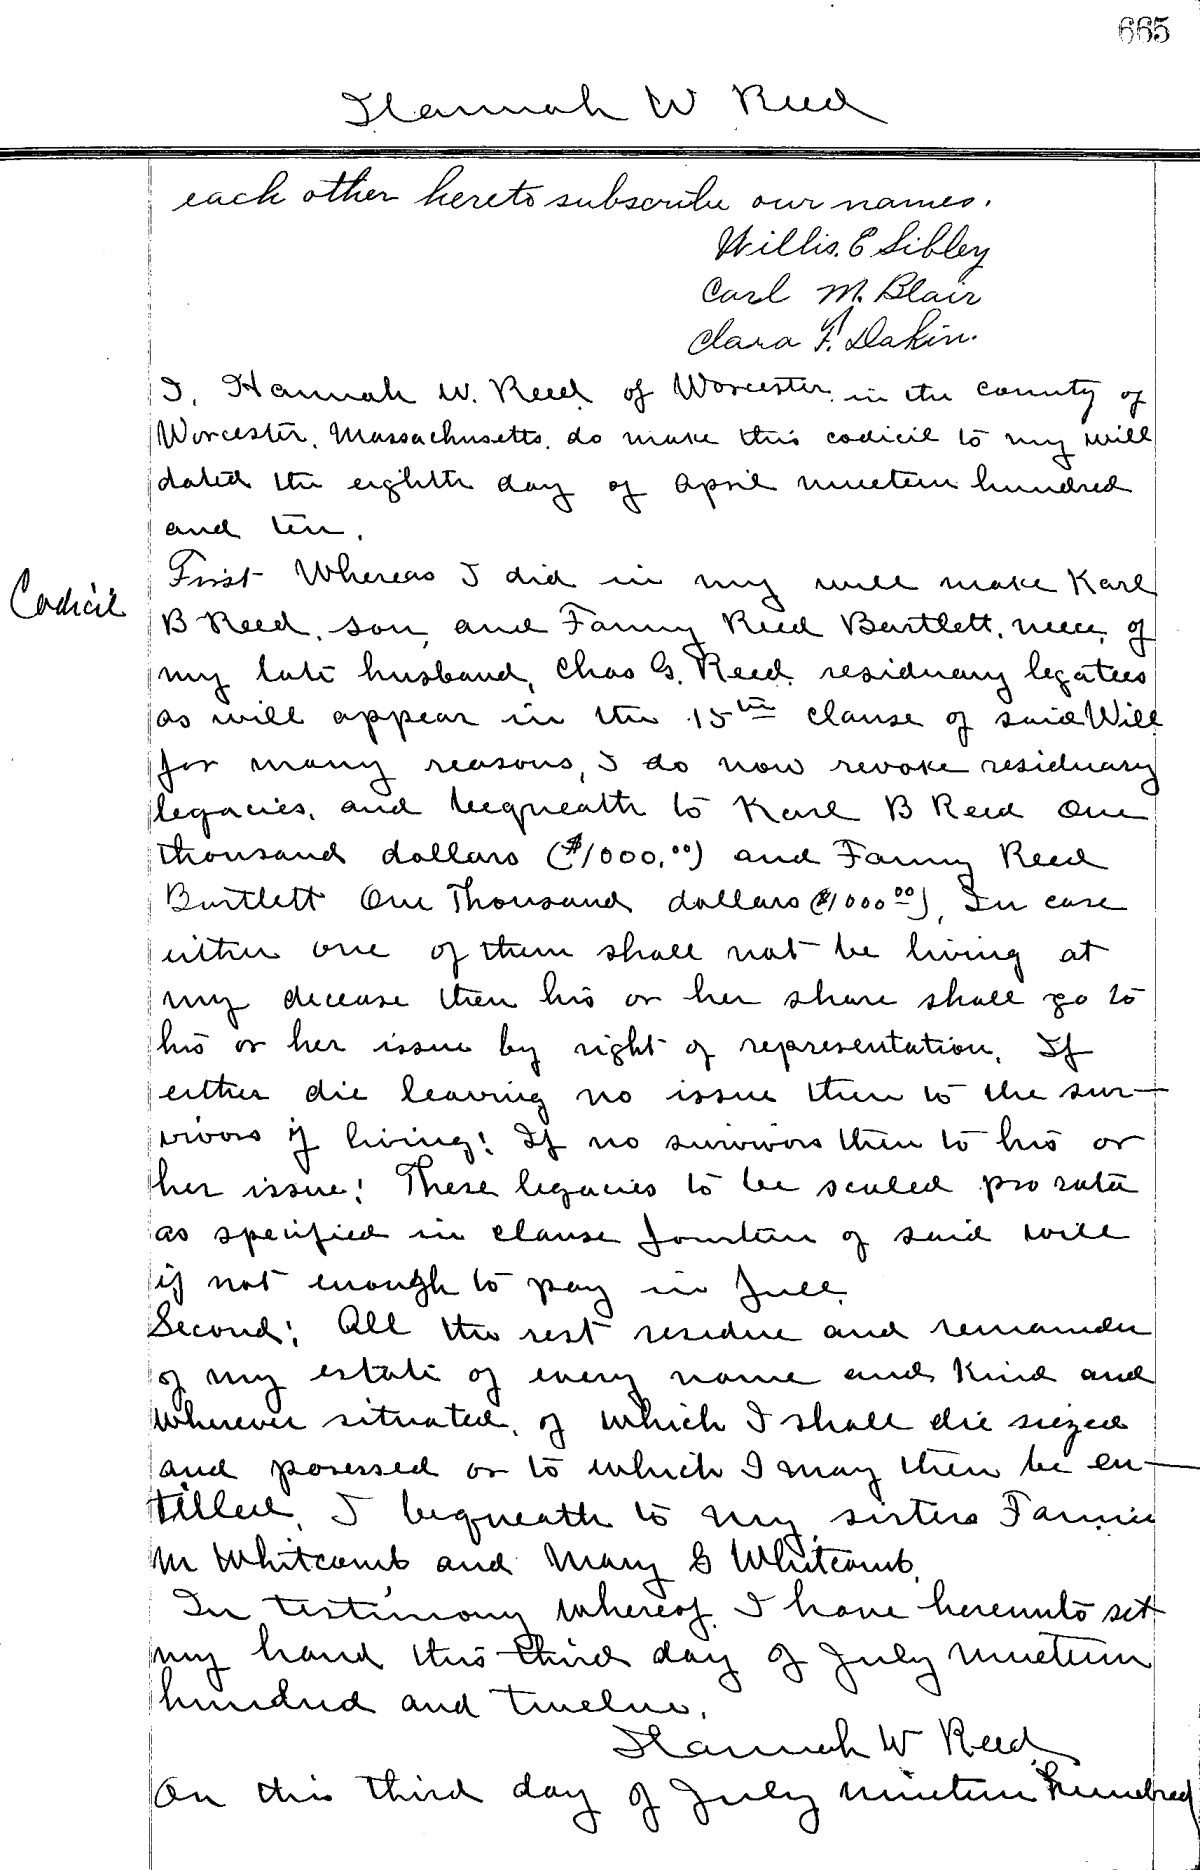 665
Hannah W Reed
each other hereto subscribe our names.
Willis. E Sibley
Carl M. Blair
Clara F. Dakin.
I, Hannah W. Reed of Worcester in the county of
Worcester, Massachusetts, do make this codicil to my will
dated the eighth day of April nineteen hundred
and ten.
Codicil
First Whereas I did in my will make Karl
B Reed, son, and Fanny Reed Bartlett, niece, of
my late husband, Chas G. Reed, residuary legatees
as will appear in the 15th clause of said Will
for many reasons, I do now revoke residuary
legacies, and bequeath to Karl B Reed One
thousand dollars ($1000.00) and Fanny Reed
Bartlett One Thousand dollars ($1000 00), In case
either one of them shall not be living at
my decease then his or her share shall go to
his or her issue by right of representation, If
either die leaving no issue then to the sur-
vivors if living; If no survivors then to his or
her issue; These legacies to be scaled pro rata
as specified in clause fourteen of said will
if not enough to pay in full.
Second; All the rest residue and remainder
of my estate of every name and kind and
wherever situated, of which I shall die siezed
and posessed or to which I may then be en-
titled, I bequeath to my sisters Fannie
M Whitcomb and Mary G Whitcomb.
In testimony whereof I have hereunto set
my hand this third day of July nineteen
hundred and twelve.
Hannah W Reed
On this third day of July nineteen hundred